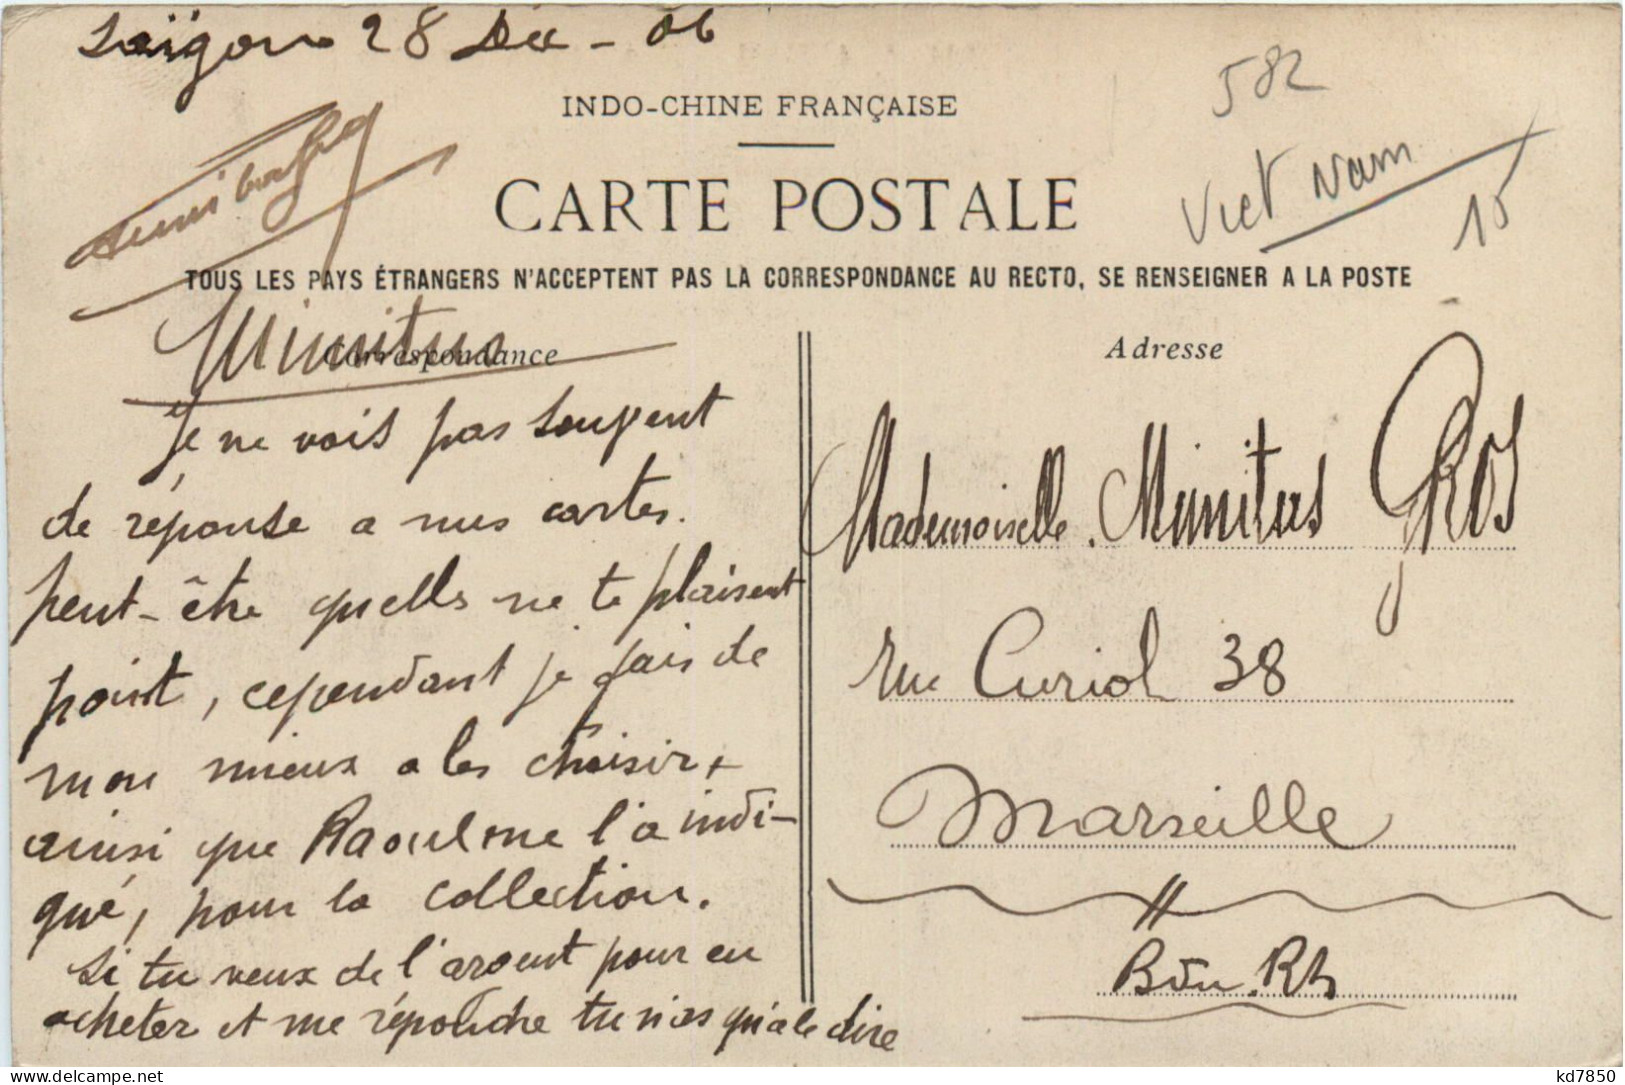 Saïgon 28 Déc - 06
582
INDO-CHINE FRANÇAISE
Viet Nam
15
CARTE POSTALE
TOUS LES PAYS ÉTRANGERS N'ACCEPTENT PAS LA CORRESPONDANCE AU RECTO, SE RENSEIGNER A LA POSTE
Correspondance
Mimitus
Je ne vois pas souvent
de réponse a mes cartes.
peut-être quelles ne te plaisent
point, cependant je fais de
mon mieux a les choisir,
ainsi que Raoul me l'a indi-
qué, pour la collection.
Si tu veux de l'argent pour en
acheter et me répondre tu n'as qu'a le dire
Adresse
Mademoiselle Mimitus GROS
rue Curiol 38
Marseille
Bou. Rh
delcampe.net
kd7850